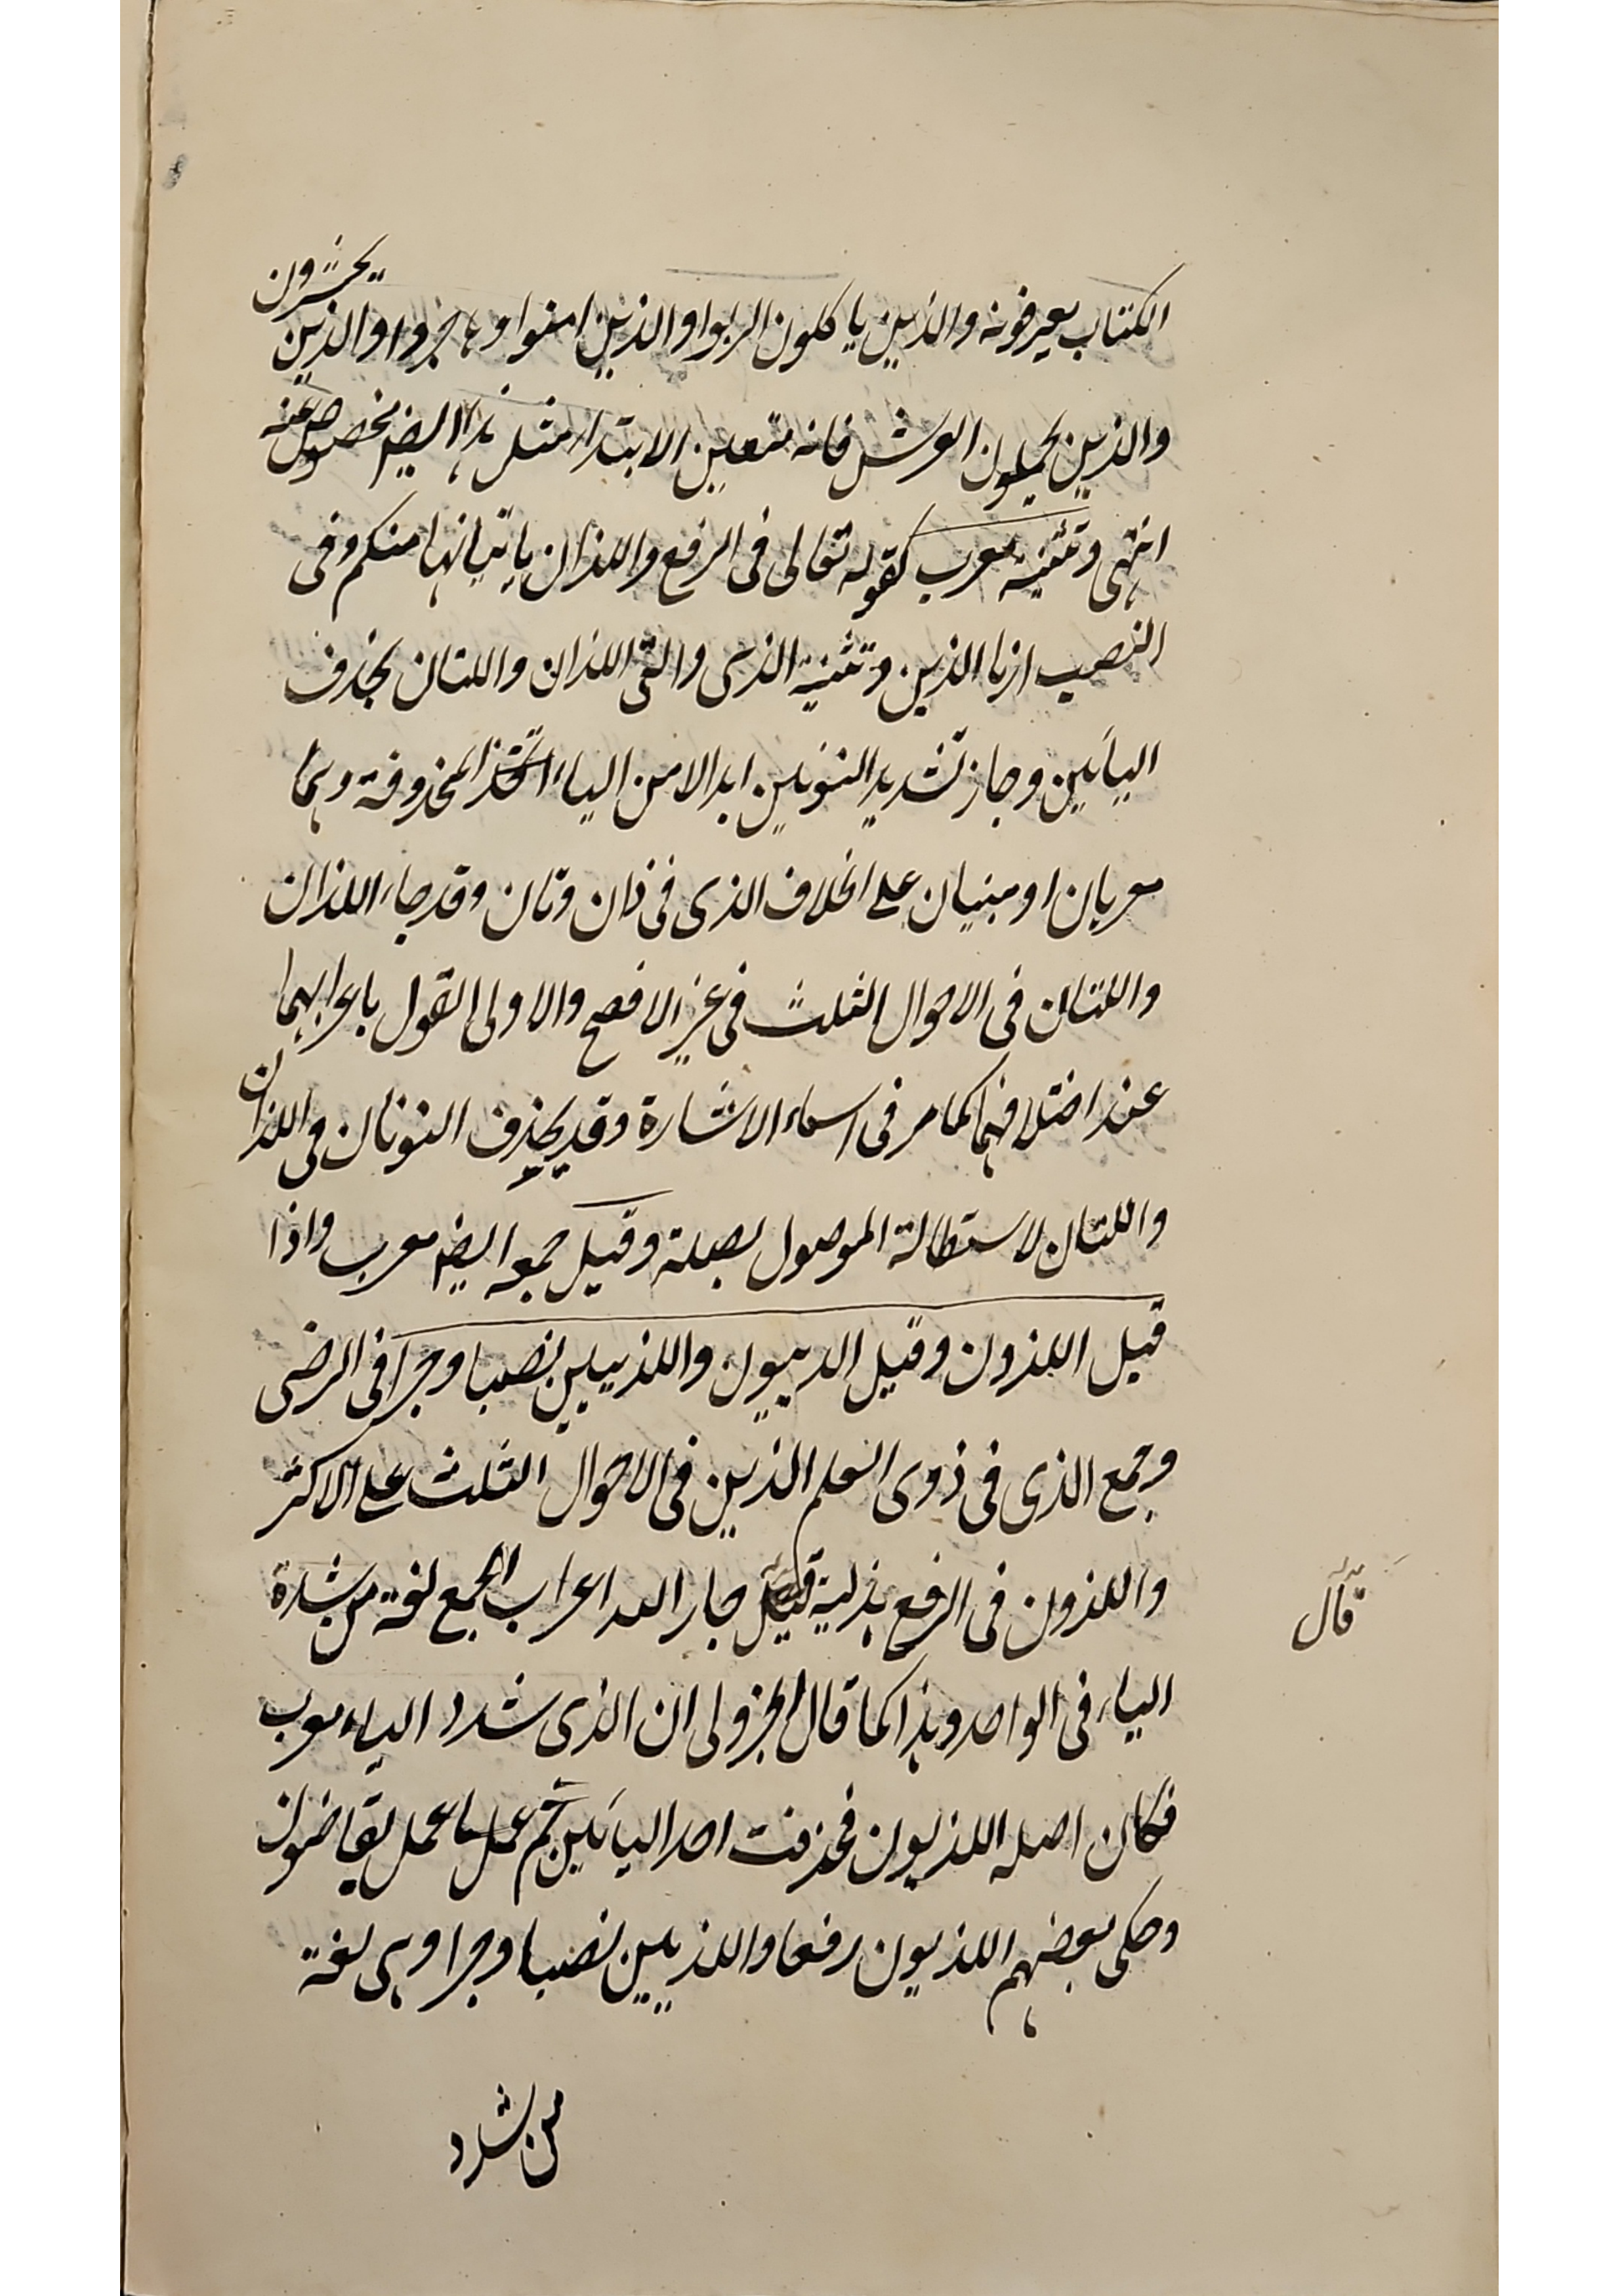 الكتاب يعرفونه والذين ياكلون الربوا والذين امنوا وهاجروا والذين يحشرون
والذين يحملون العرش فانه متعين الابتداء مثل هذا ايضا مخصوص عنه
انتهى وتثنيته معرب كقوله تعالى فى الرفع واللذان ياتيانها منكم وفى
النصب ارنا الذين وتثنية الذى والتى اللذان واللتان بحذف
اليائين وجاز تشديد النونين ابدالا من الياء المحذوفة وهما
معربان او مبنيان على الخلاف الذى فى ذان وتان وقد جاء اللذان
واللتان فى الاحوال الثلث فى غير الافصح والاولى القول باعرابهما
عند اختلافهما كما مر فى اسماء الاشارة وقد يحذف النونان فى اللذان
واللتان لاستطالة الموصول بصلة وقيل جمعه ايضا معرب واذا
قيل اللذون وقيل الذييون واللذييين نصبا وجرا فى الرضى
وجمع الذى فى ذوى العلم الذين فى الاحوال الثلث على الاكثر
واللذون فى الرفع هذلية قيل جار الله اعراب الجمع لغة من شدة
قال
الياء فى الواحد وهذا كما قال الجزولى ان الذى شدد الياء معرب
فكان اصله اللذيون فحذفت احد اليائين ثم عمل ما عمل بقاضون
وحكى بعضهم اللذيون رفعا واللذيين نصبا وجرا وهى لغة
من شدد